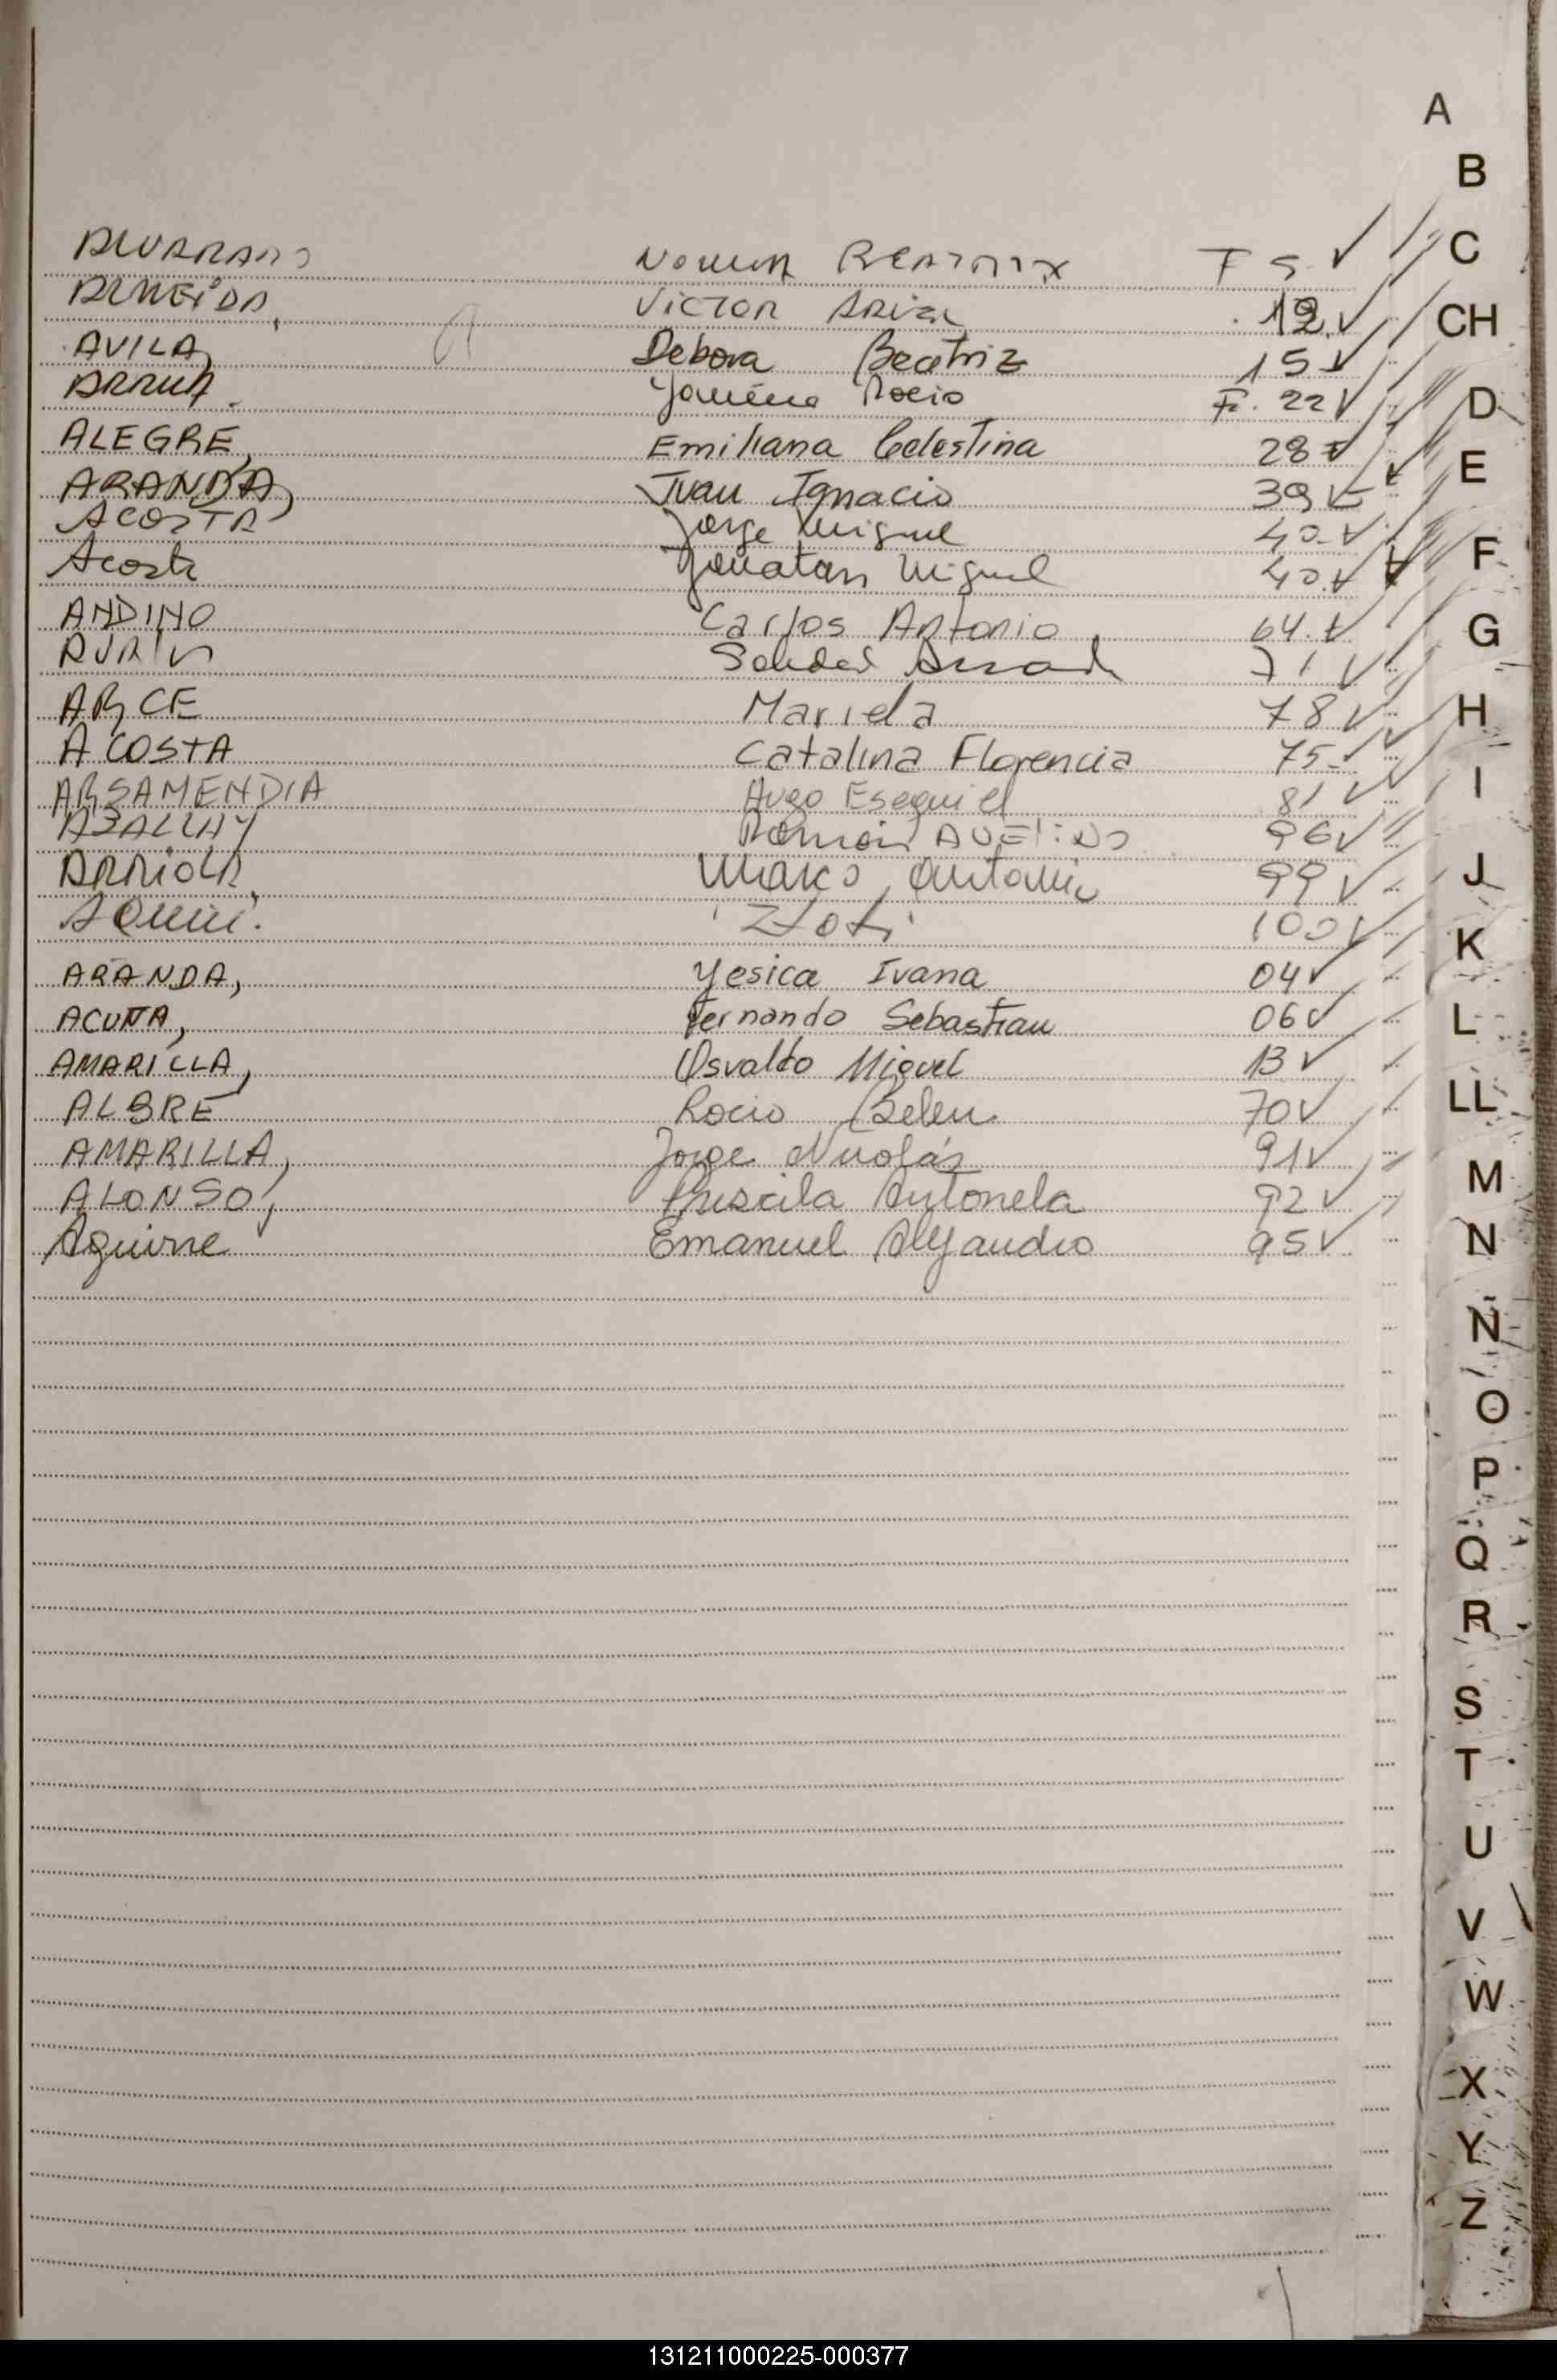 ALVARADO NORMA BEATRIZ F 5 ✓
ALMEIDA, VICTOR ARIEL 12 ✓
AVILA, Debora Beatriz 15 ✓
Yaména Rocio F. 22 ✓
ALEGRE, Emiliana Celestina 28 ✓
ARANDA, Ivan Ignacio 39 ✓
ACOSTA Jorge Miguel 40 ✓
Acosta Jonatan Miguel 40 ✓
ANDINO Carlos Antonio 64 ✓
Soledad 71 ✓
ARCE Mariela 78 ✓
ACOSTA Catalina Florencia 75 ✓
ARSAMENDIA Hugo Esequiel 81 ✓
Ramón AVELINO 96 ✓
ARRIOLA, Marco Antonio 99 ✓
100 ✓
ARANDA, Yesica Ivana 04 ✓
ACUÑA, Fernando Sebastian 06 ✓
AMARILLA, Osvaldo Miguel 13 ✓
ALGRE Rocio Belen 70 ✓
AMARILLA, Jorge Nicolás 91 ✓
ALONSO, Priscila Antonela 92 ✓
Aguirre Emanuel Alejandro 95 ✓
A
B
C
CH
D
E
F
G
H
I
J
K
L
LL
M
N
Ñ
O
P
Q
R
S
T
U
V
W
X
Y
Z
131211000225-000377